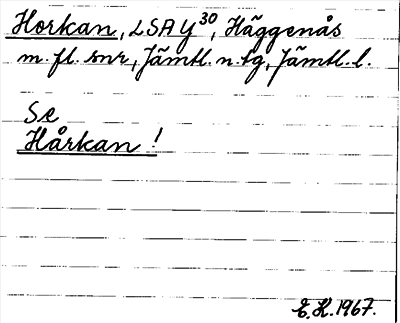 Horkan, LSA Y30, Häggenås
m.fl. snr, Jämtl. n. tg, Jämtl. l.
Se
Hårkan!
E.K. 1967.